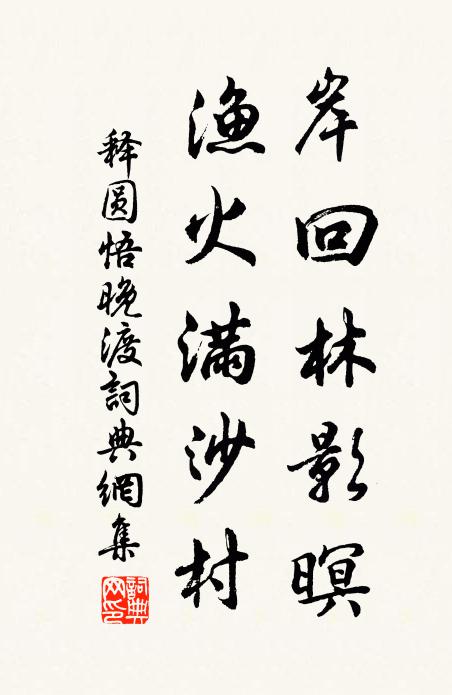 岸回林影暝
渔火满沙村
释圆悟晚渡詞典網集
詞典网印